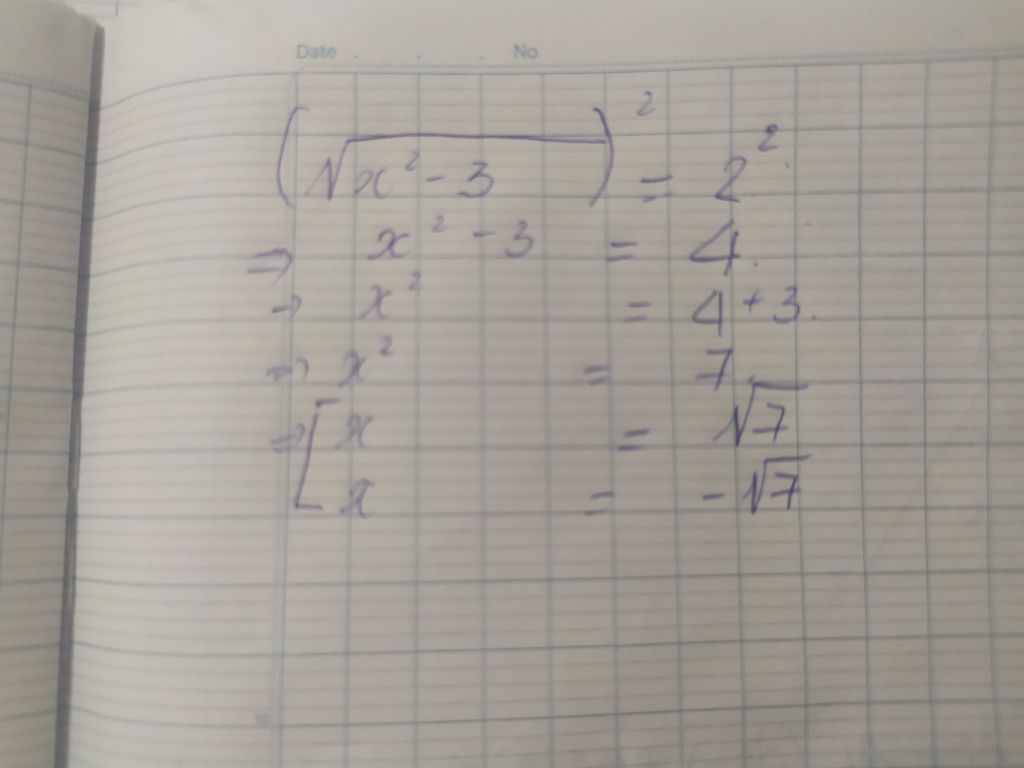 Date . . . No
(√x² - 3)² = 2²
⇒ x² - 3 = 4.
→ x² = 4 + 3.
⇒ x² = 7.
⇒ [ x = √7
x = - √7